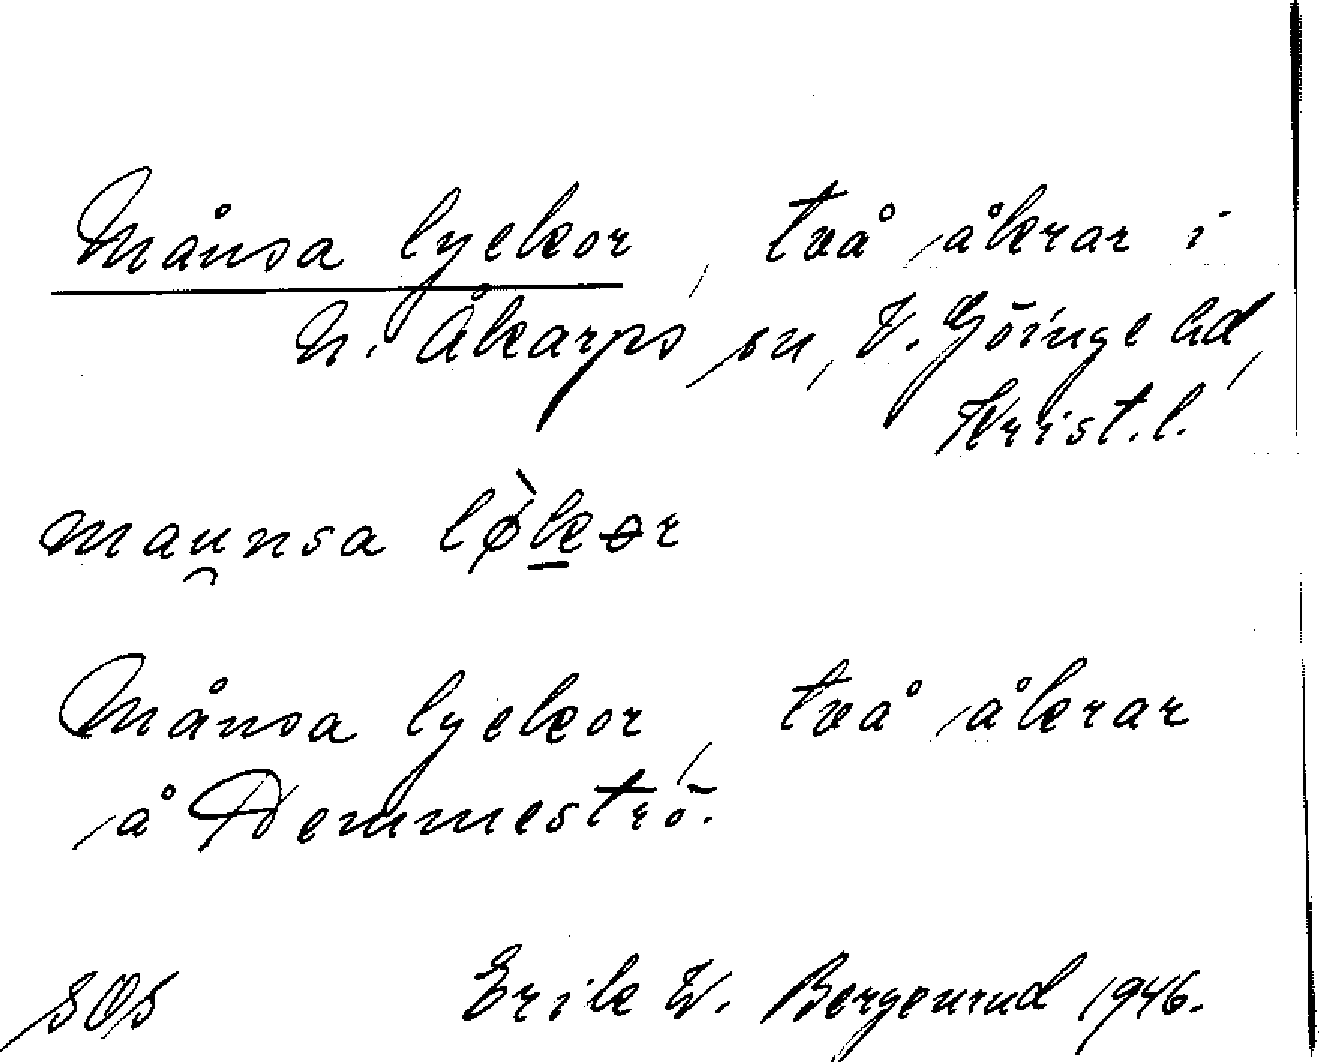 Månsa lyckor, två åkrar i
N. Åkarps sn, V. Göinge hd,
Krist. l.
mau̯nsa lø̀kər
Månsa lyckor, två åkrar
å Demmeströ.
SOS Erik W. Bergenrud 1946.